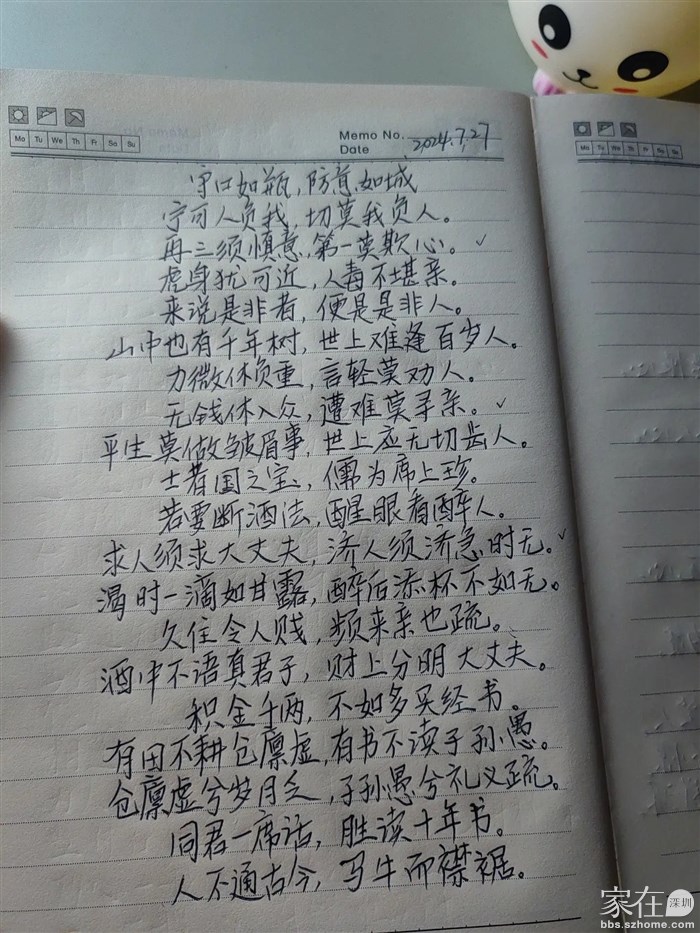 Mo Tu We Th Fr Sa Su
Memo No.
Date 2024.7.27
守口如瓶，防意如城
宁可人负我，切莫我负人。
再三须慎意，第一莫欺心。✓
虎身犹可近，人毒不堪亲。
来说是非者，便是是非人。
山中也有千年树，世上难逢百岁人。
力微休负重，言轻莫劝人。
无钱休入众，遭难莫寻亲。✓
平生莫做皱眉事，世上应无切齿人。
士者国之宝，儒为席上珍。
若要断酒法，醒眼看醉人。
求人须求大丈夫，济人须济急时无。✓
渴时一滴如甘露，醉后添杯不如无。
久住令人贱，频来亲也疏。
酒中不语真君子，财上分明大丈夫。
积金千两，不如多买经书。
有田不耕仓廪虚，有书不读子孙愚。
仓廪虚兮岁月乏，子孙愚兮礼义疏。
同君一席话，胜读十年书。
人不通古今，马牛而襟裾。
Mo Tu We Th Fr Sa Su
家在深圳
bbs.szhome.com